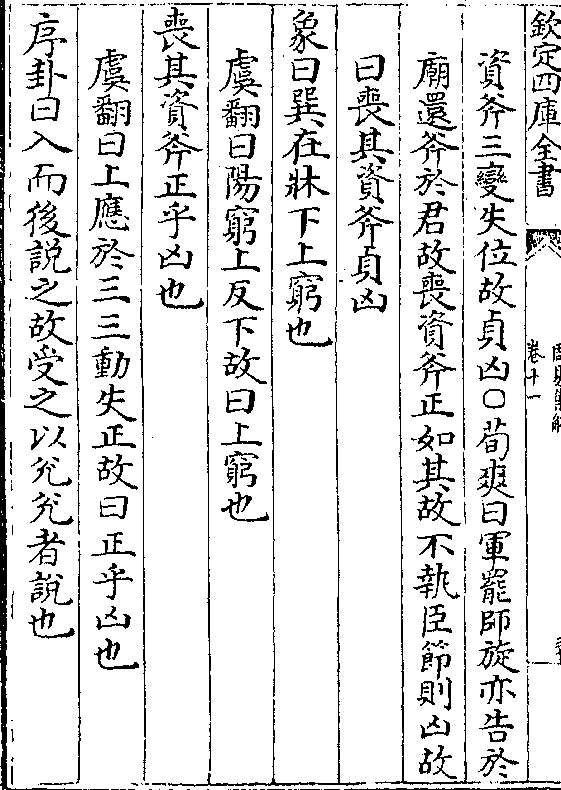 欽定四庫全書
卷十一
資斧三變失位故貞凶○荀爽曰軍罷師旋亦告於
廟還斧於君故喪資斧正如其故不執臣節則凶故
曰喪其資斧貞凶
象曰巽在牀下上窮也
虞翻曰陽窮上反下故曰上窮也
喪其資斧正乎凶也
虞翻曰上應於三三動失正故曰正乎凶也
序卦曰入而後説之故受之以兊兊者說也